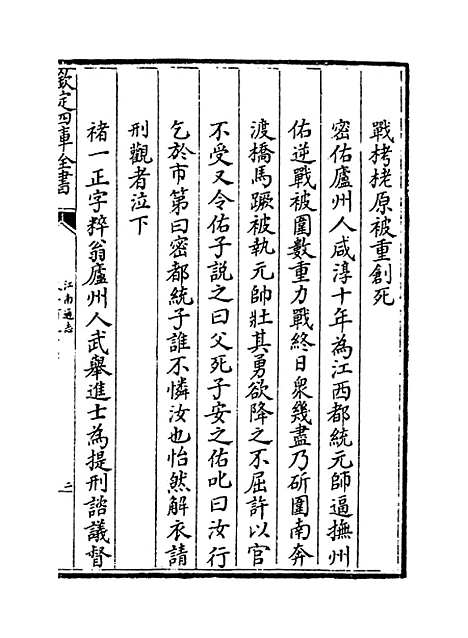 戰栲栳原被重創死
密佑廬州人咸淳十年為江西都統元師逼撫州
佑逆戰被圍數重力戰終日衆幾盡乃斫圍南奔
渡橋馬蹶被執元帥壯其勇欲降之不屈許以官
不受又令佑子説之曰父死子安之佑叱曰汝行
乞於市第曰密都統子誰不憐汝也怡然解衣請
刑觀者泣下
褚一正字粹翁廬州人武舉進士為提刑諮議督
欽定四庫全書
江南通志
二